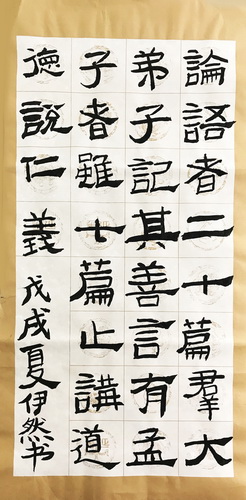 論語者二十篇羣大
弟子記其善言有孟
子者雖七篇止講道
德說仁義
戊戌夏伊然书